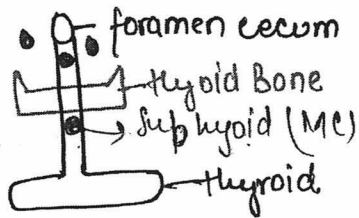 foramen cecum
Hyoid Bone
Subhyoid (MC)
thyroid